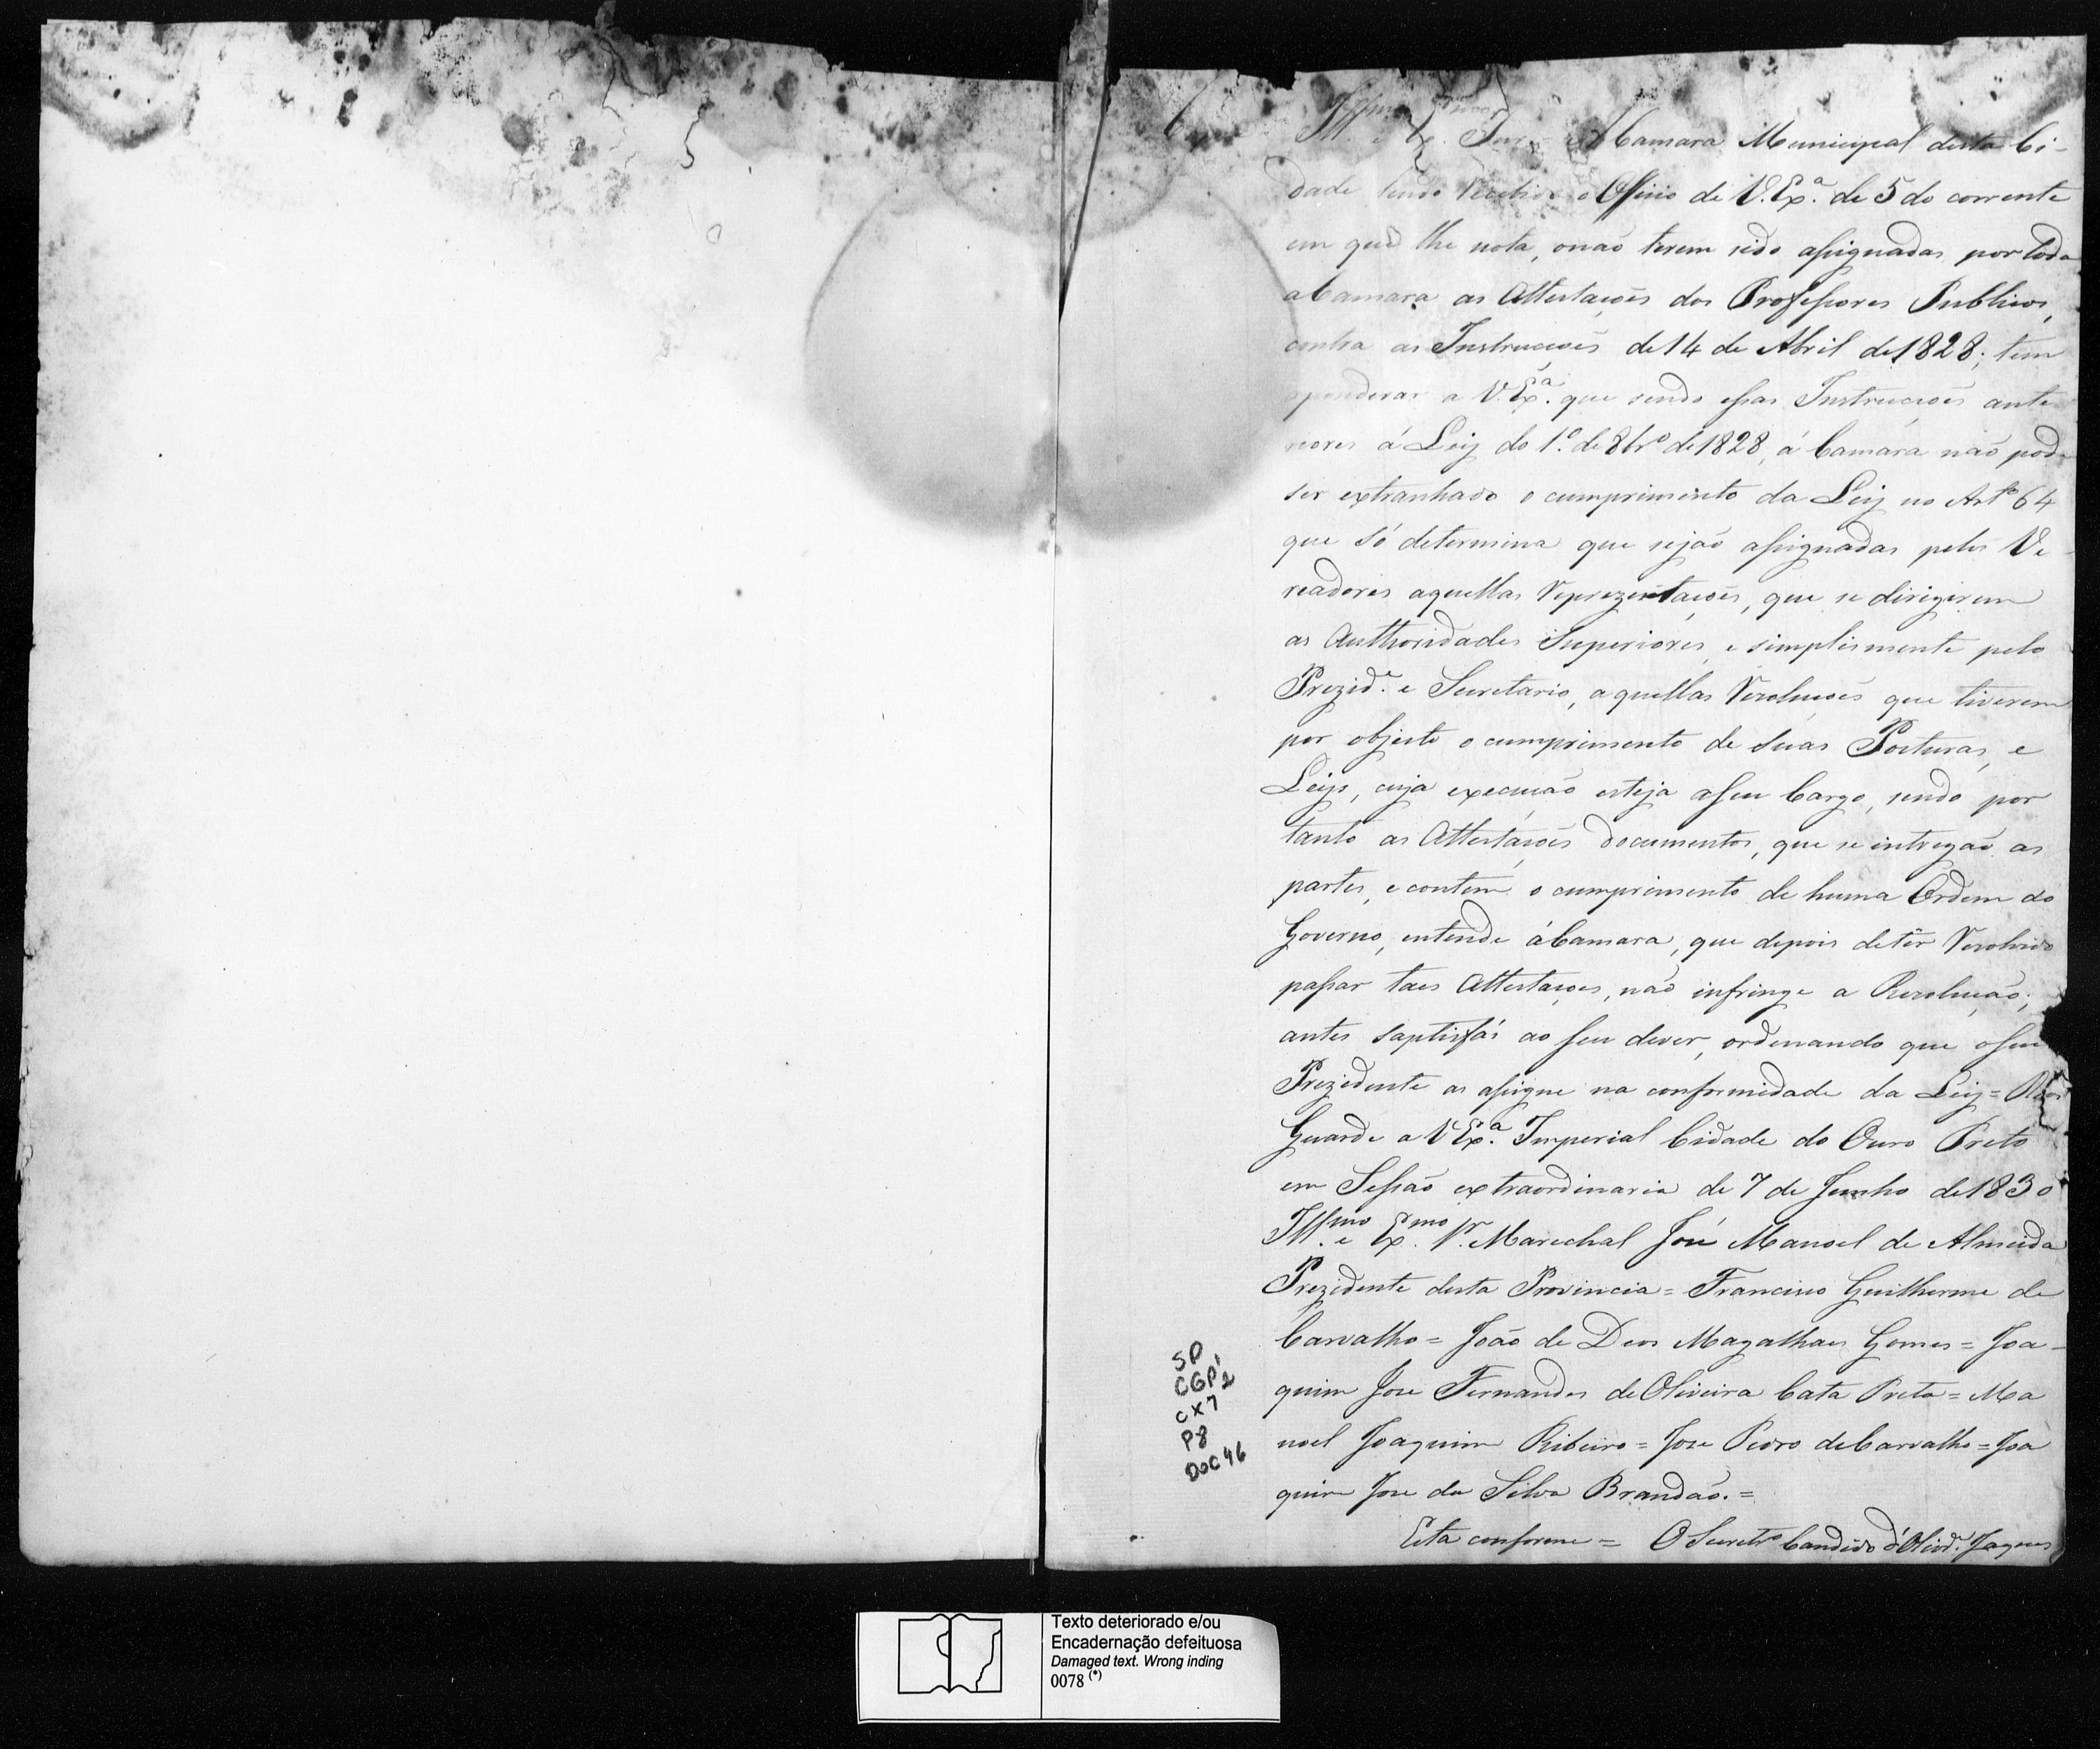 Ill.mo e Ex. Snr. A Camara Municipal desta Ci-
dade tendo recebido o Officio de V. Ex.ª de 5 do corrente
em que lhe nota, onaõ terem sido assignadas por toda
a Camara as Attestaçoẽs dos Professores Publicos,
contra as Instrucçoẽs de 14 de Abril de 1828; tem
a ponderar a V. Ex.ª que sendo essas Instrucçoẽs ante
riores á Leij do 1.º de 8br.º de 1828, á Camara naõ pode
ser extranhado o cumprimento da Leij no Art.º 64
que só determina que sejaõ assignadas pelos Ve-
readores aquellas reprezentaçoẽs, que se dirigirem
as Authoridades Superiores, e simplismente pelo
Prezid.e e Secretario, aquellas rezoluçoẽs que tiverem
por objecto o cumprimento de suas Posturas, e
Leijs, cuja execuçaõ esteja aseu Cargo, sendo por
tanto as Attestaçoẽs documentos, que se intregaõ as
partes, e contem o cumprimento de huma Ordem do
Governo, entende áCamara, que depois detêr rezolvido
passar taes Attestaçoes, naõ infringe a Rezoluçaõ;
antes saptisfás ao seu dever, ordenando que oseu
Prezidente as assigne na conformidade da Leij = Deos
Guarde a V Ex.ª Imperial Cidade do Ouro Preto
em Sessaõ extraordinaria de 7 de Junho de 1830
Ill.mo e Ex.mo Sr. Marechal José Manoel de Almeida
Prezidente desta Provincia = Francisco Guilherme de
Carvalho = João de Deos Magalhaes Gomes = Joa-
quim Joze Fernandes de Oliveira Cata Preta = Ma
noel Joaquim Ribeiro = Joze Pedro de Carvalho = Joa
quim Joze da Silva Brandaõ. =
Esta conforme = O Secretr.º Candido d'Olivr.ª Jaques
SP
CGP1 2
CX7
P8
DOC 46
Texto deteriorado e/ou
Encadernação defeituosa
Damaged text. Wrong inding
0078 (*)